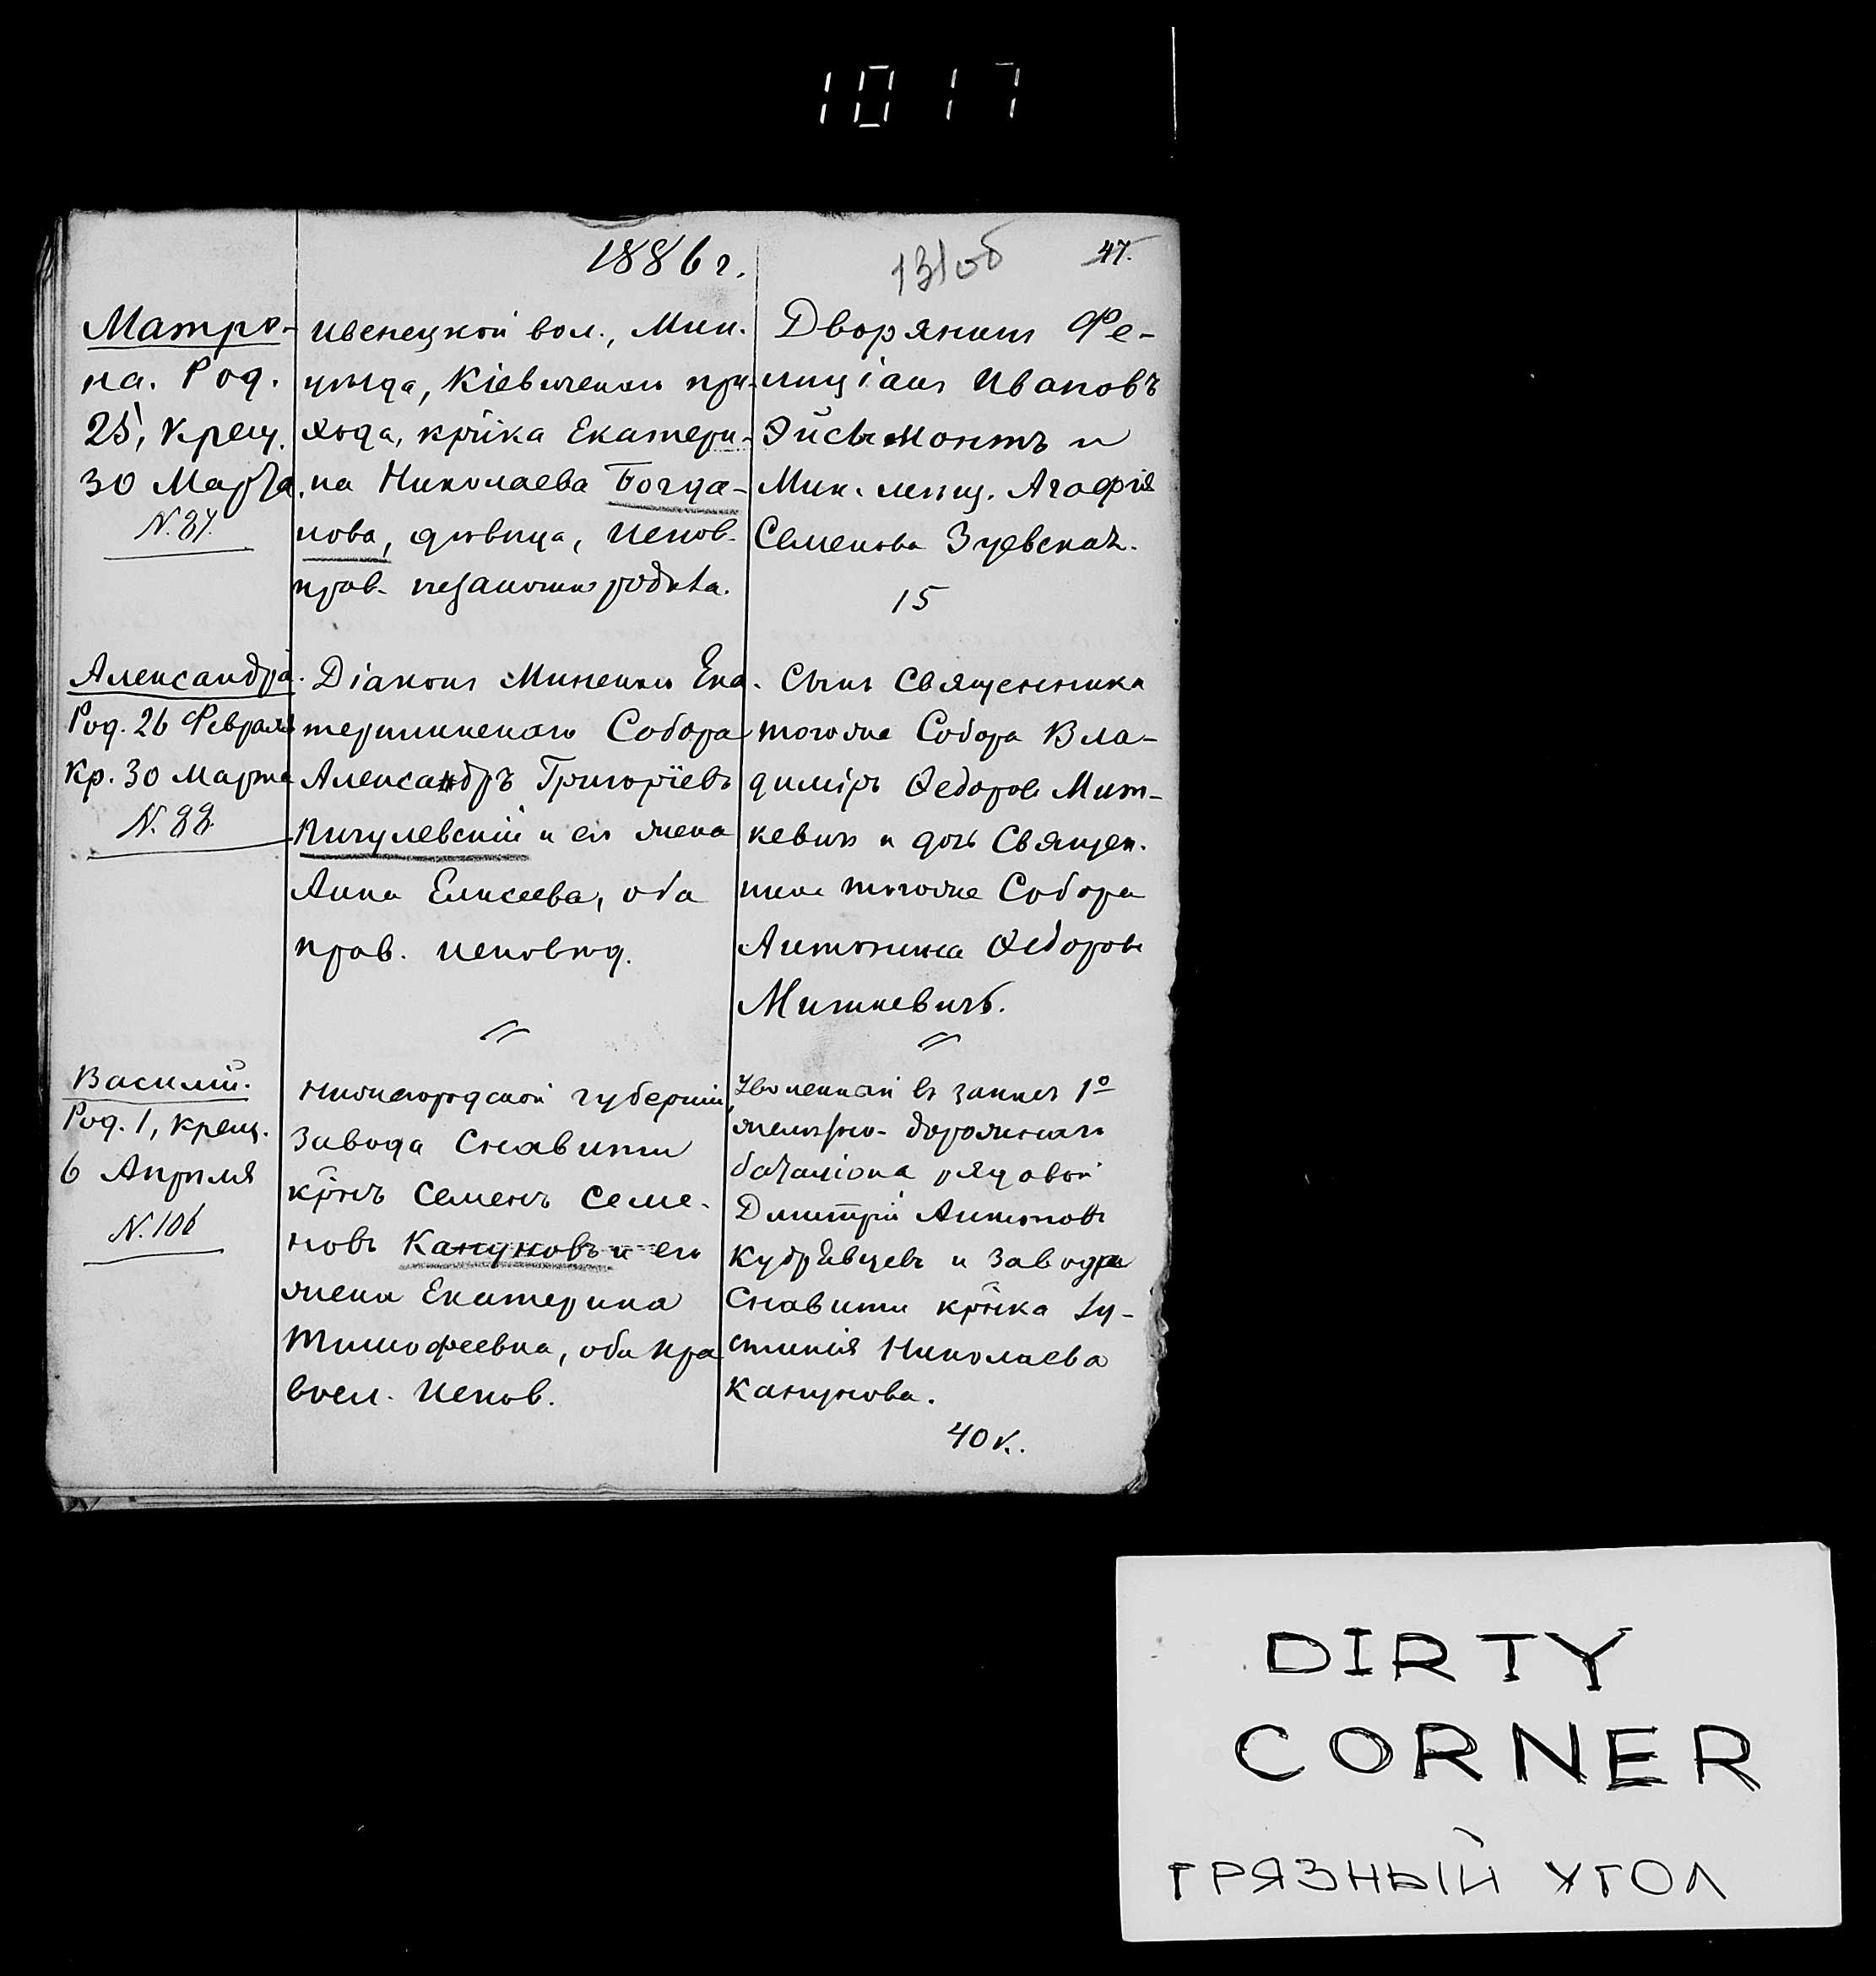 1017
1886 г.
13/об
47.
Матро-
на. Род.
25, крещ.
30 Марта
N. 87.
Ивенецкой вол., Мин.
уѣзда, Кіевичскаго при-
хода, кр̃нка Екатери-
на Николаева Богда-
нова, дѣвица, испов.
прав. незаконно родила.
Дворянинъ Фе-
лиціанъ Ивановъ
Эйсымонтъ и
Мин. мѣщ. Агафія
Семенова Зуевская.
15
Александра.
Род. 26 Февраля
Кр. 30 Марта
N. 88.
Діаконъ Минскаго Ека-
терининскаго Собора
Александръ Григоріевъ
Пигулевскій и его жена
Анна Елисеева, оба
прав. исповѣд.
Сынъ Священника
тогоже Собора Вла-
диміръ Ѳедоровъ Мит-
кевичъ и дочь Священ.
тогоже Собора
Антонина Ѳедорова
Миткевичъ.
Василій.
Род. 1, крещ.
6 Апрѣля
N. 106
Нижегородской губерніи,
завода Снавити
кр̃нъ Семенъ Семе-
новъ Кануновъ и его
жена Екатерина
Тимофеевна, оба пра
восл. испов.
Уволенный въ запасъ 1º
желѣзно-дорожнаго
баталіона рядовой
Дмитрій Антоновъ
Кудрявцевъ и завода
Снавити кр̃нка Іу-
стинія Николаева
Канунова.
40 к.
DIRTY
CORNER
ГРЯЗНЫЙ УГОЛ